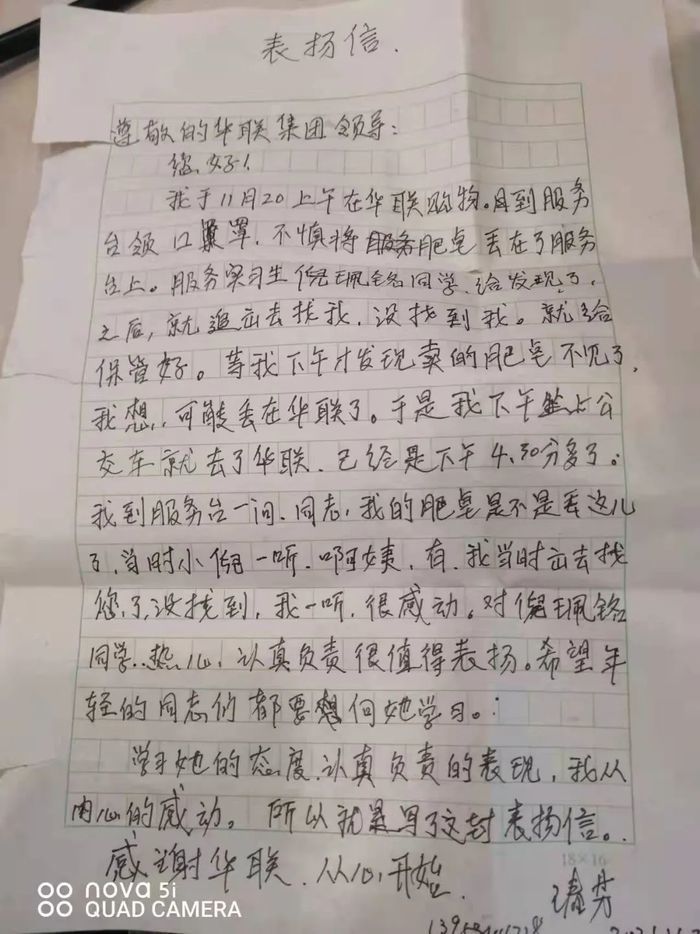 表扬信.
尊敬的华联集团领导:
您好!
我于11月20上午在华联购物。且到服务
台领口罩.不慎将服务肥皂丢在了服务
台上。服务实习生倪珮铭同学.给发现了,
之后,就追出去找我,没找到我。就给
保管好。等我下午才发现卖的肥皂不见了,
我想,可能丢在华联了。于是我下午坐上公
交车就去了华联.已经是下午4.30分多了。
我到服务台一问.同志,我的肥皂是不是丢这儿
了,当时小倪一听.啊阿姨,有.我当时出去找
您了,没找到,我一听.很感动。对倪珮铭
同学..热心,认真负责很值得表扬。希望年
轻的同志们都要想向她学习。
学习她的态度.认真负责的表现,我从
内心的感动。所以就是写了这封表扬信。
感谢华联.从心开始.
18×16
nova 5i
QUAD CAMERA